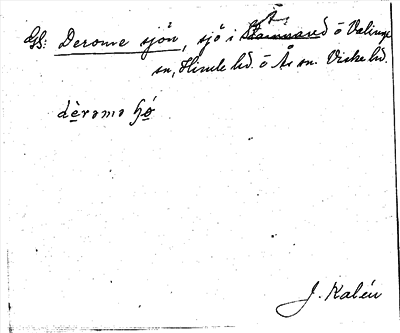 Gs: Derome sjön, sjö i Ås o Valinge
sn, Himle hd. o Ås sn. Viske hd.
dèromo
J. Kalén